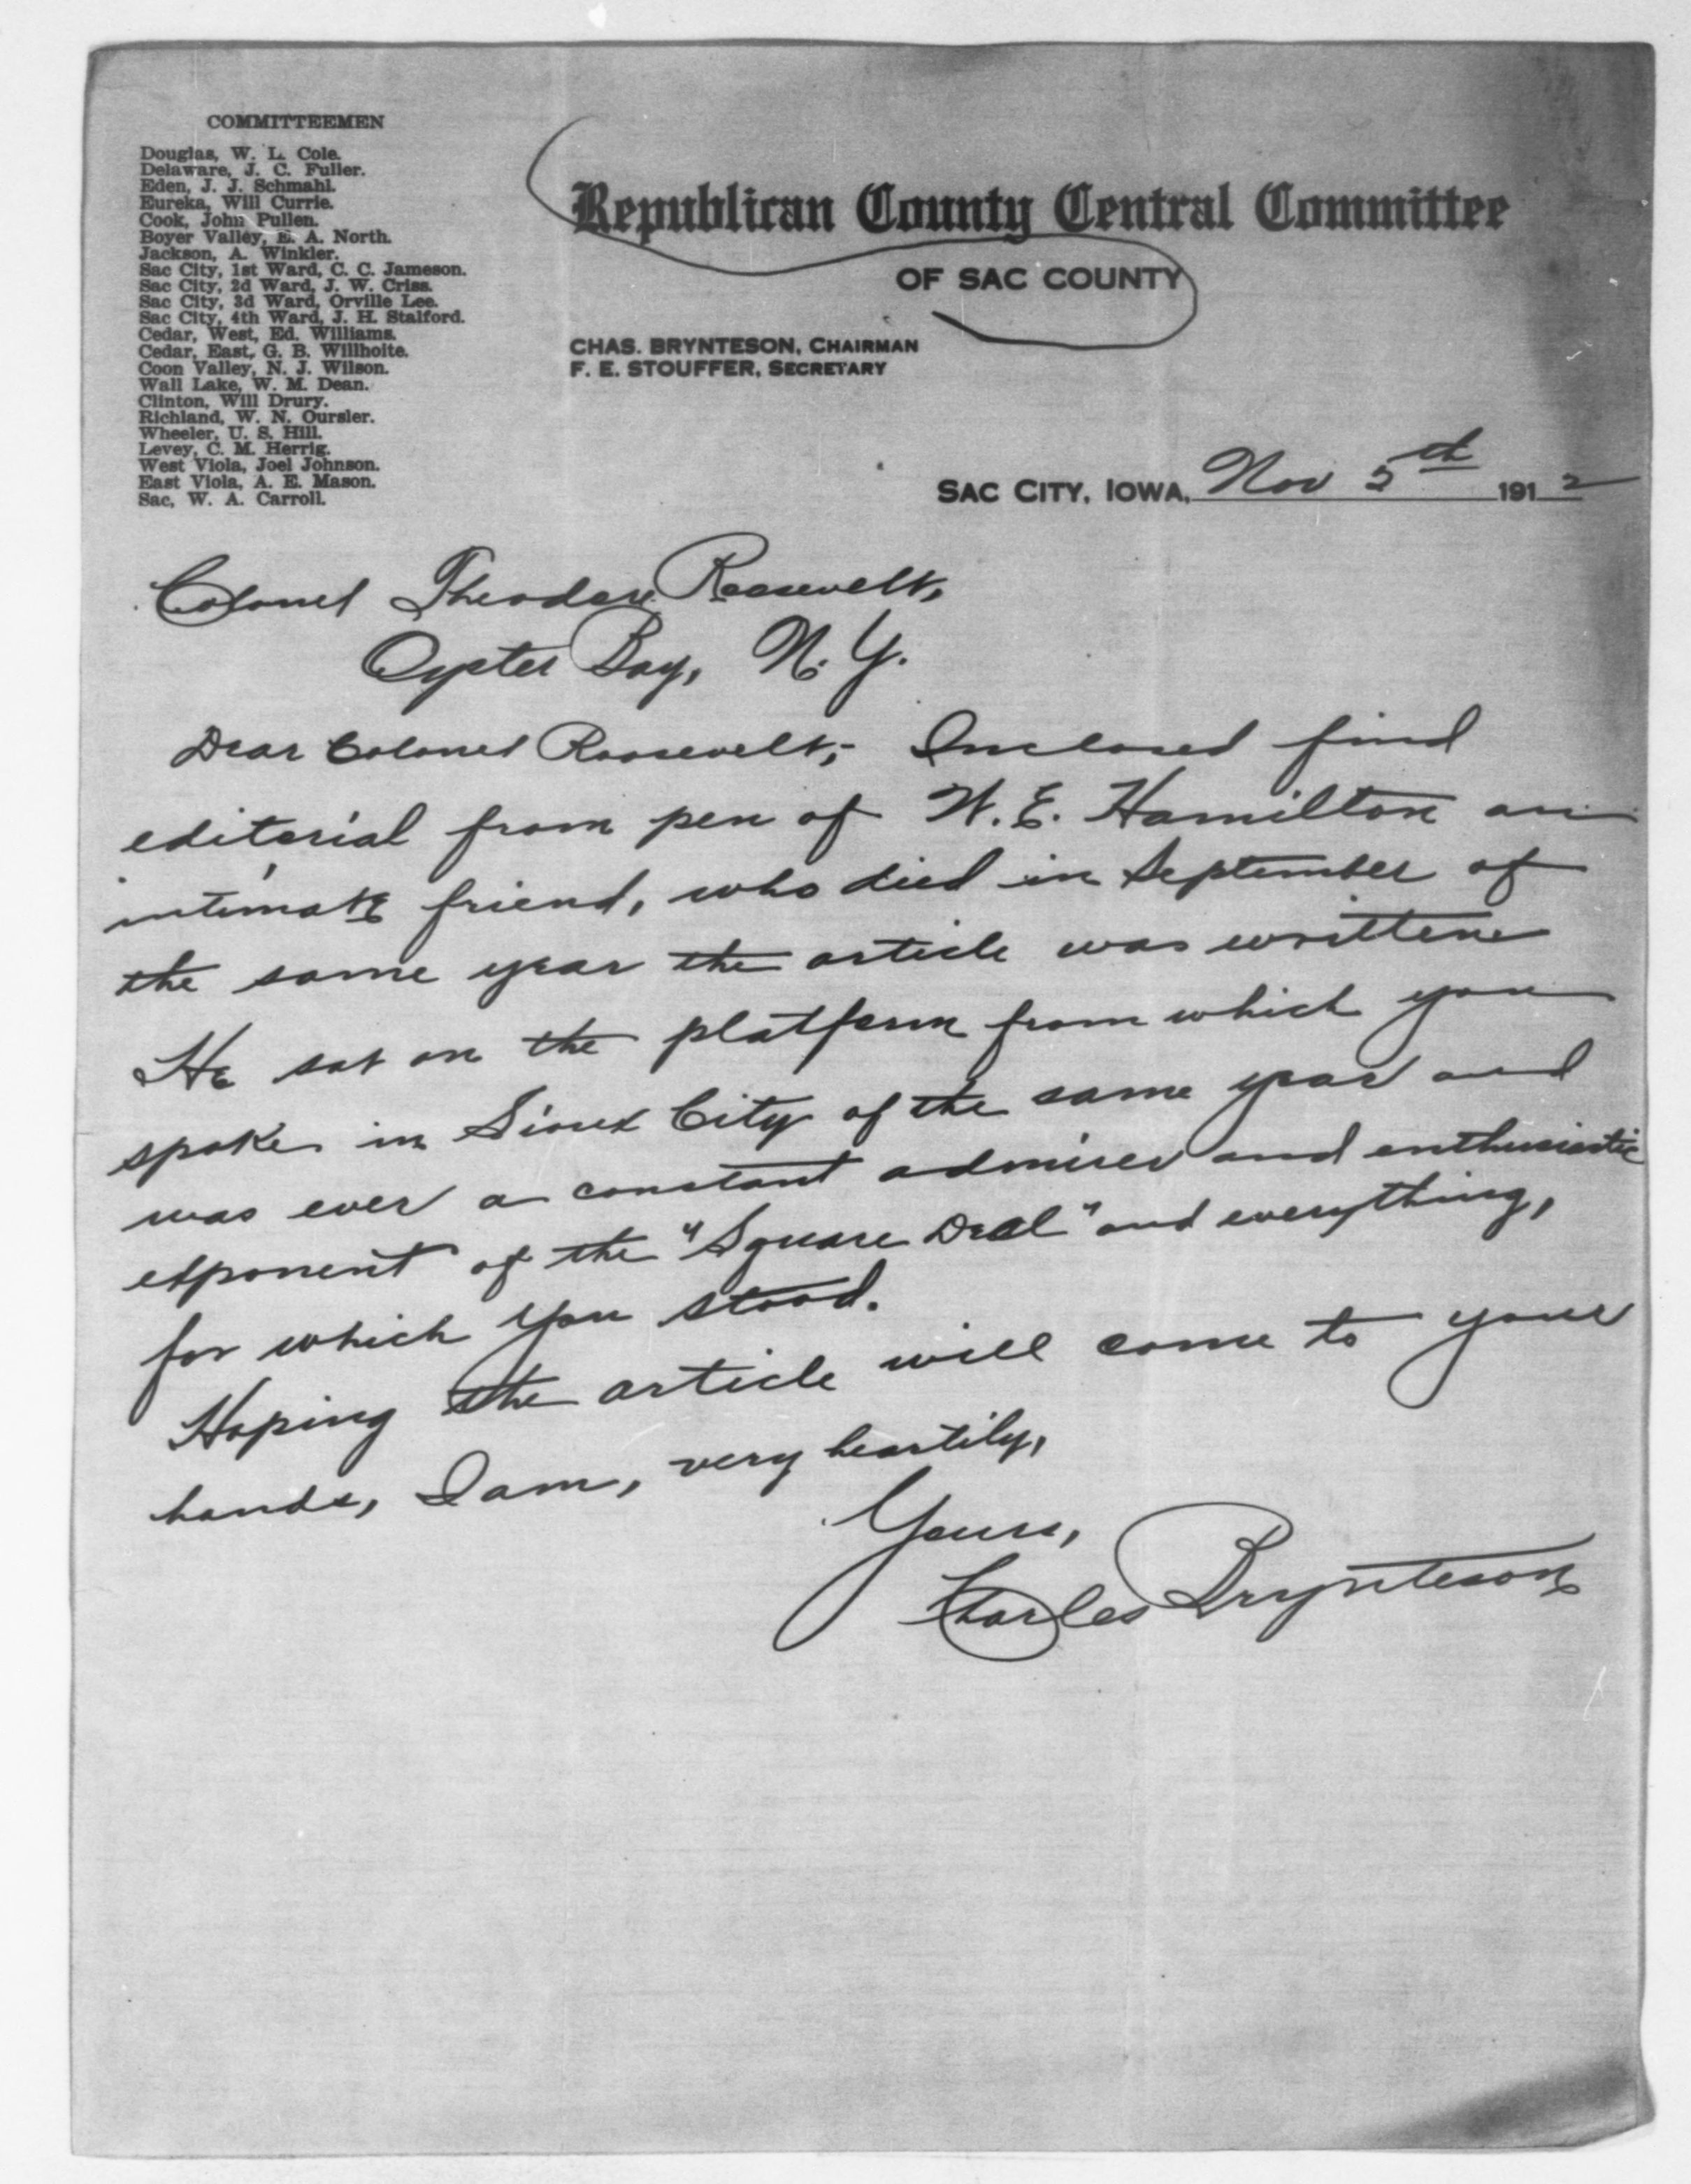 COMMITTEEMEN
Douglas, W. L. Cole.
Delaware, J. C. Fuller.
Eden, J. J. Schmahl.
Eureka, Will Currie.
Cook, John Pullen.
Boyer Valley, E. A. North.
Jackson, A. Winkler.
Sac City, 1st Ward, C. C. Jameson.
Sac City, 2d Ward, J. W. Criss.
Sac City, 3d Ward, Orville Lee.
Sac City, 4th Ward, J. H. Stalford.
Cedar, West, Ed. Williams.
Cedar, East, G. B. Willhoite.
Coon Valley, N. J. Wilson.
Wall Lake, W. M. Dean.
Clinton, Will Drury.
Richland, W. N. Oursler.
Wheeler, U. S. Hill.
Levey, C. M. Herrig.
West Viola, Joel Johnson.
East Viola, A. E. Mason.
Sac, W. A. Carroll.
Republican County Central Committee
OF SAC COUNTY
CHAS. BRYNTESON, CHAIRMAN
F. E. STOUFFER, SECRETARY
SAC CITY, IOWA, Nov 5th 1912
Colonel Theodore Roosevelt,
Oyster Bay, N. Y.
Dear Colonel Roosevelt;- Inclosed find
editorial from pen of W. E. Hamilton an
intimate friend, who died in September of
the same year the article was written
He sat on the platform from which you
spoke in Sioux City of the same year and
was ever a constant admirer and enthusiastic
exponent of the "Square Deal" and everything,
for which you stood.
Hoping the article will come to your
hands, I am, very heartily,
Yours,
Charles Brynteson